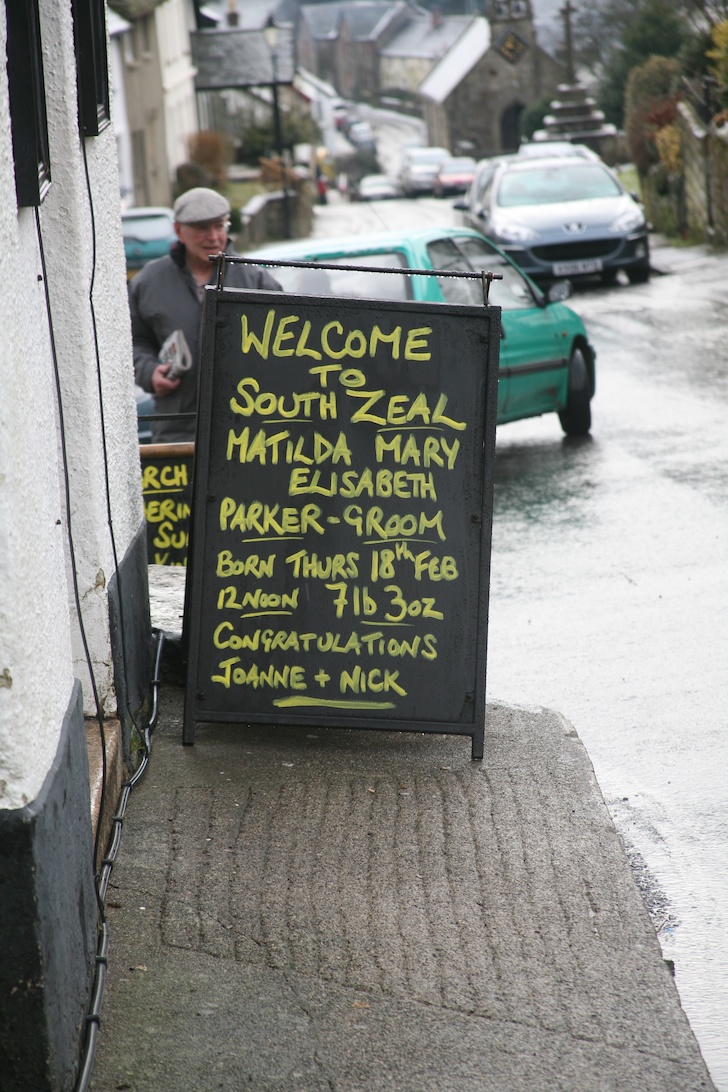 WELCOME
TO
SOUTH ZEAL
MATILDA MARY
ELISABETH
PARKER-GROOM
BORN THURS 18th FEB
12 NOON 7lb 3oz
CONGRATULATIONS
JOANNE + NICK